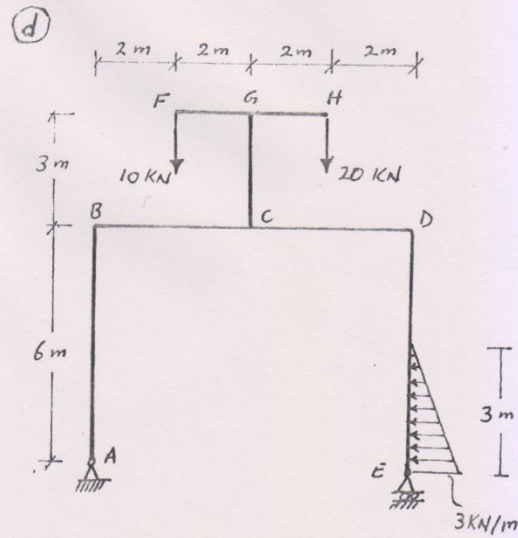 d
2 m 2 m 2 m 2 m
F G H
3 m
10 KN 20 KN
B C D
6 m
3 m
A
E
3 KN/m